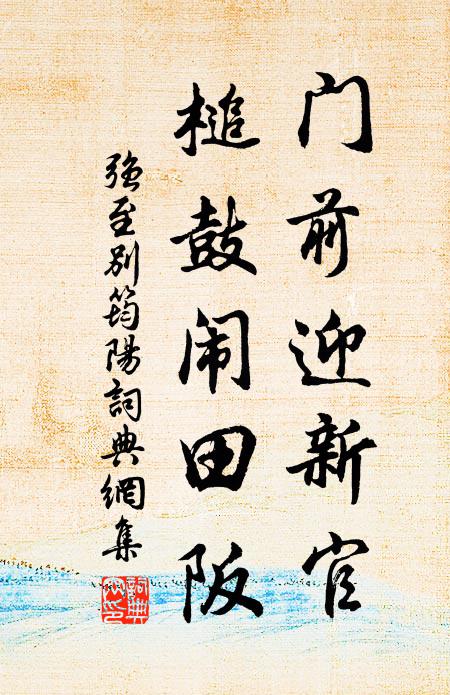 门前迎新官
槌鼓闹田阪
强至别筠陽詞典網集